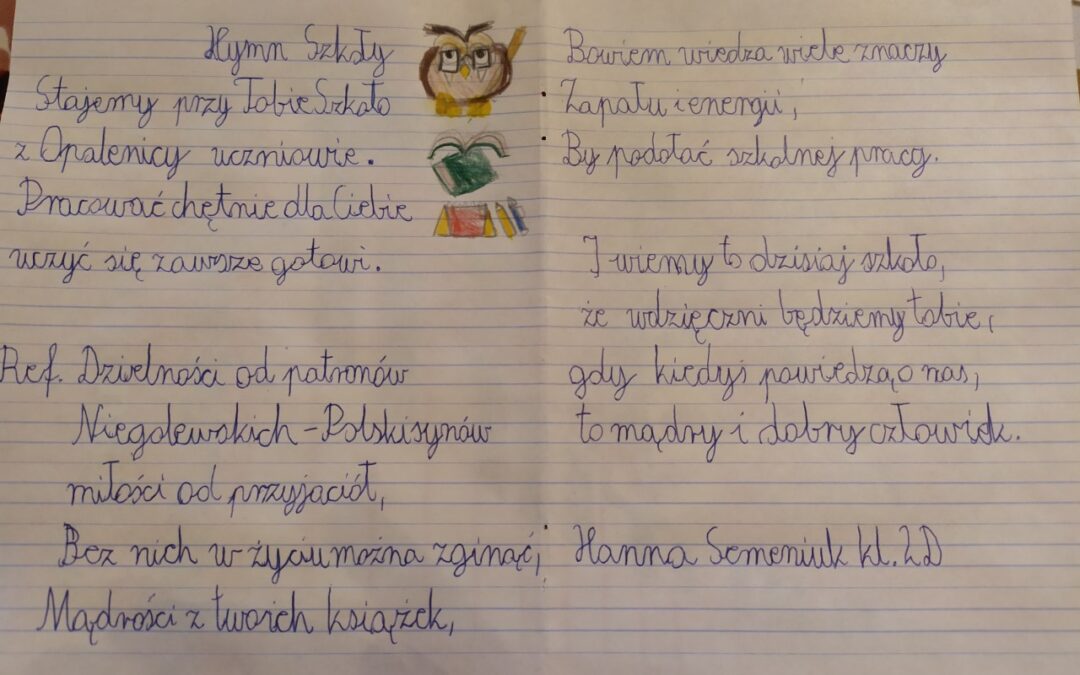 Hymn Szkoły
Stajemy przy Tobie Szkoło
z Opalenicy uczniowie.
Pracować chętnie dla Ciebie
uczyć się zawsze gotowi.
Ref. Dzielności od patronów
Niegolewskich - Polski synów
miłości od przyjaciół,
Bez nich w życiu można zginąć,
Mądrości z twoich książek,
Bowiem wiedza wiele znaczy
Zapału i energii,
By podołać szkolnej pracy.
I wiemy to dzisiaj szkoło,
że wdzięczni będziemy tobie,
gdy kiedyś powiedzą o nas,
to mądry i dobry człowiek.
Hanna Semeniuk kl. 2D